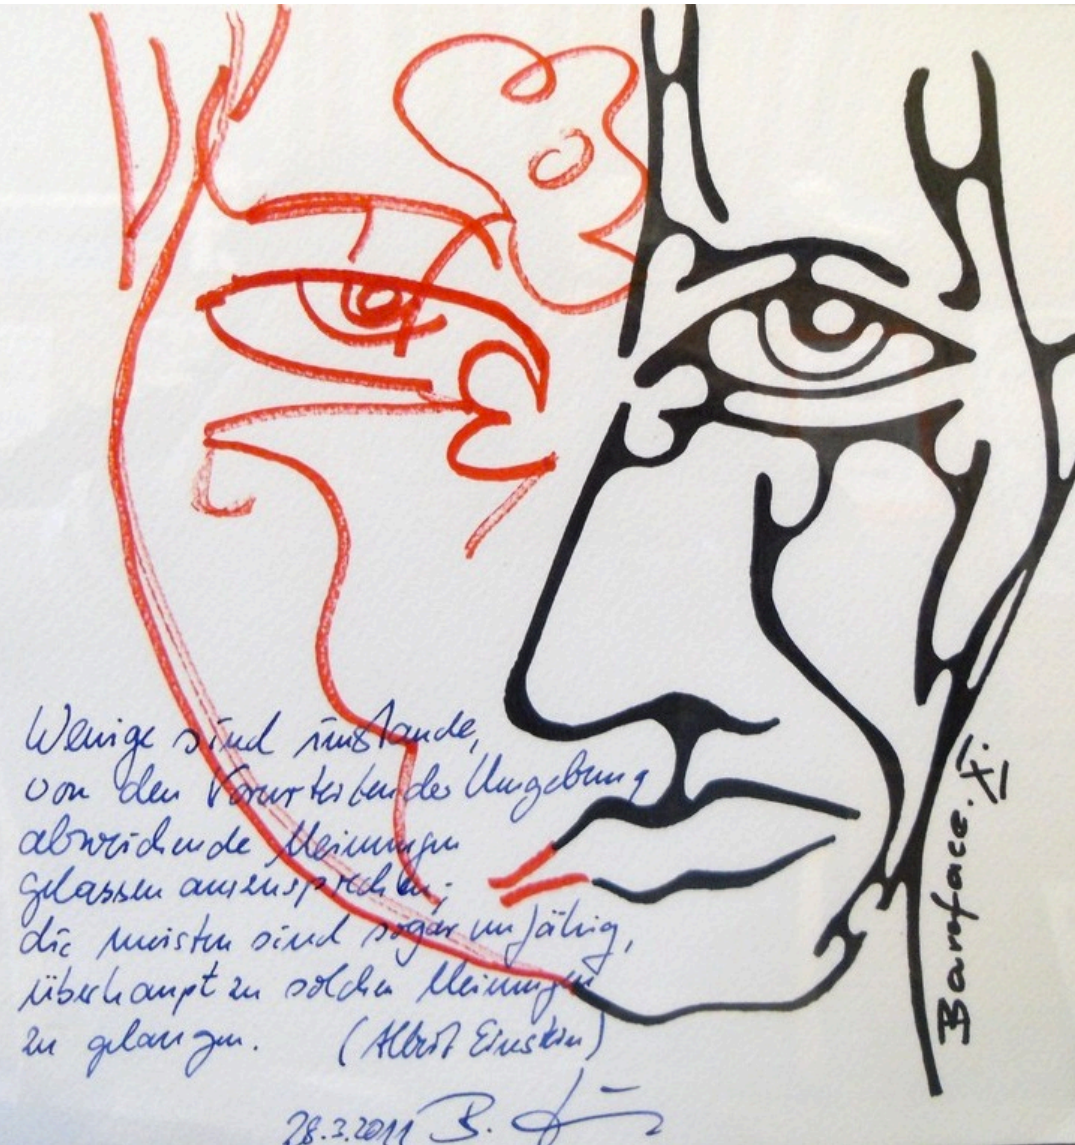 Wenige sind imstande,
von den Vorurteilen der Umgebung
abweichende Meinungen
gelassen auszusprechen;
die meisten sind sogar unfähig,
überhaupt zu solchen Meinungen
zu gelangen. (Albert Einstein)
28.3.2011 B.
Barnface. XI.